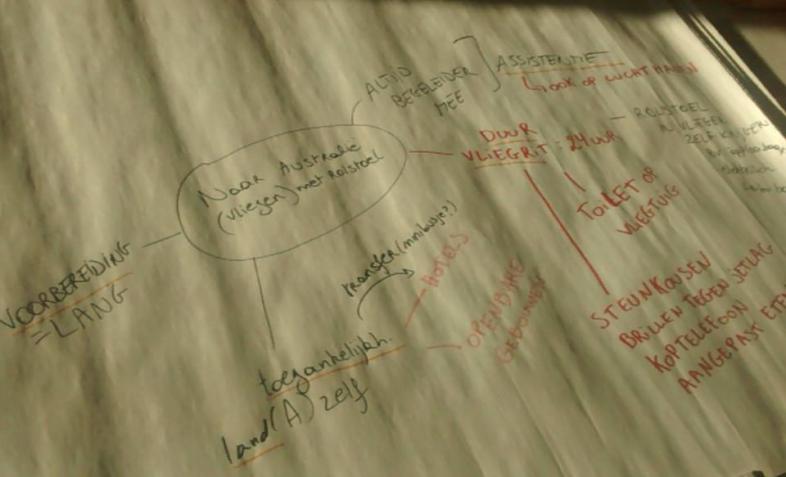 Naar Australie
(vliegen) met rolstoel
ALTIJD
BEGELEIDER
MEE
ASSISTENTIE
OOK OP LUCHTHAVEN
DUUR
VLIEGRIT : 24 UUR
ROLSTOEL
IN VLIEGER
ZELF
TOILET OP
VLIEGTUIG
STEUNKOUSEN
BRILLEN TEGEN JETLAG
KOPTELEFOON
AANGEPAST ETEN
VOORBEREIDING
= LANG
toegankelijkh.
land (A) zelf
transfer (minibusje?)
HOTELS
OPENBARE
GEBOUWEN